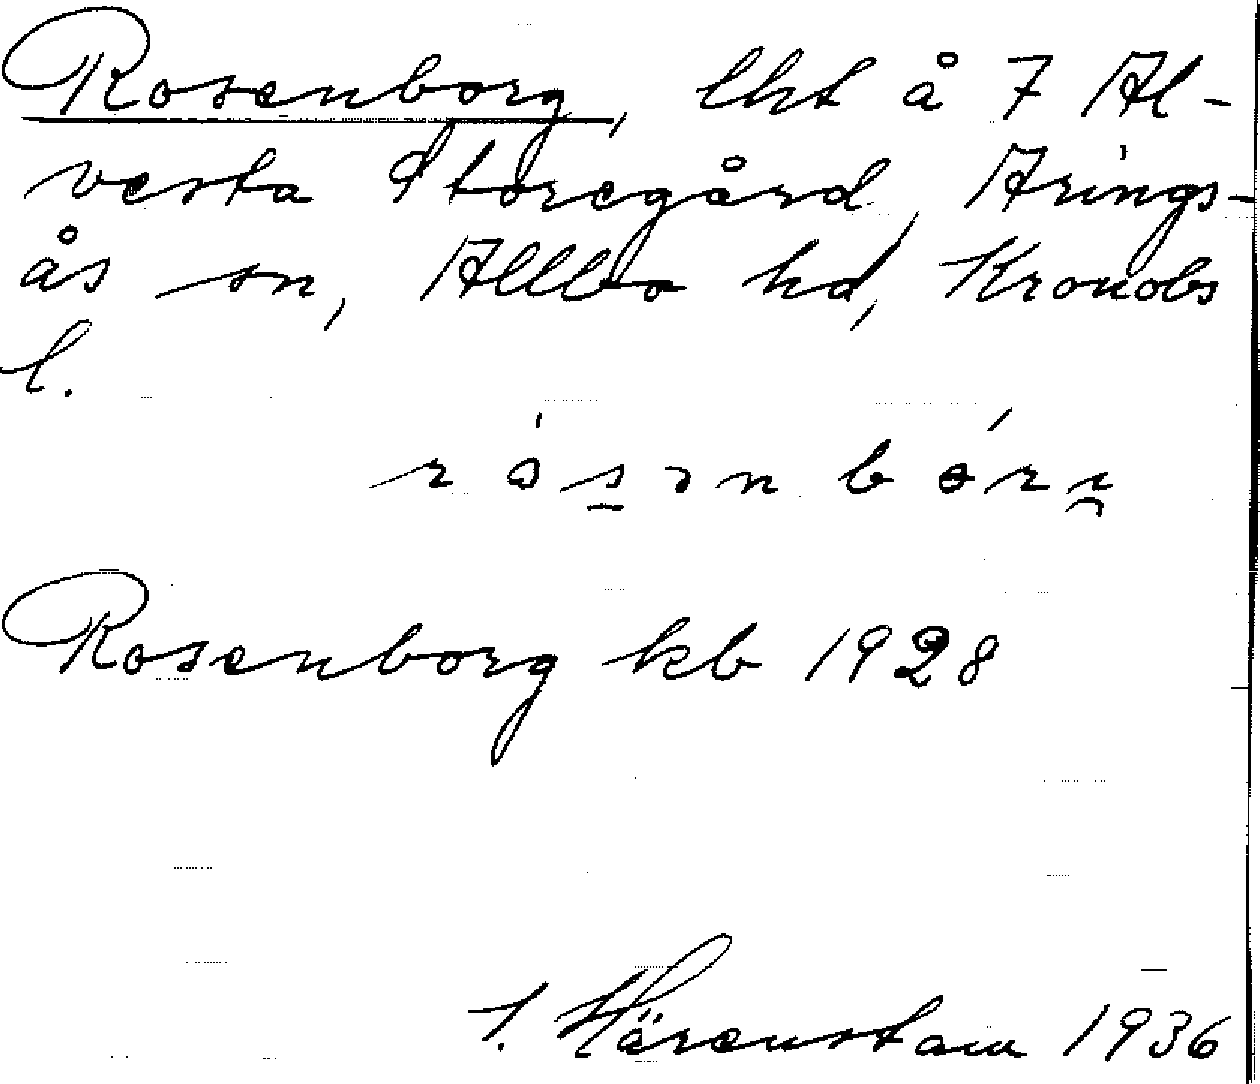 Rosenborg, lht å 7 Al-
vesta Storegård, Arings-
ås sn, Allbo hd, Kronobs
l.
Rosenborg kb 1928
Härenstam 1936